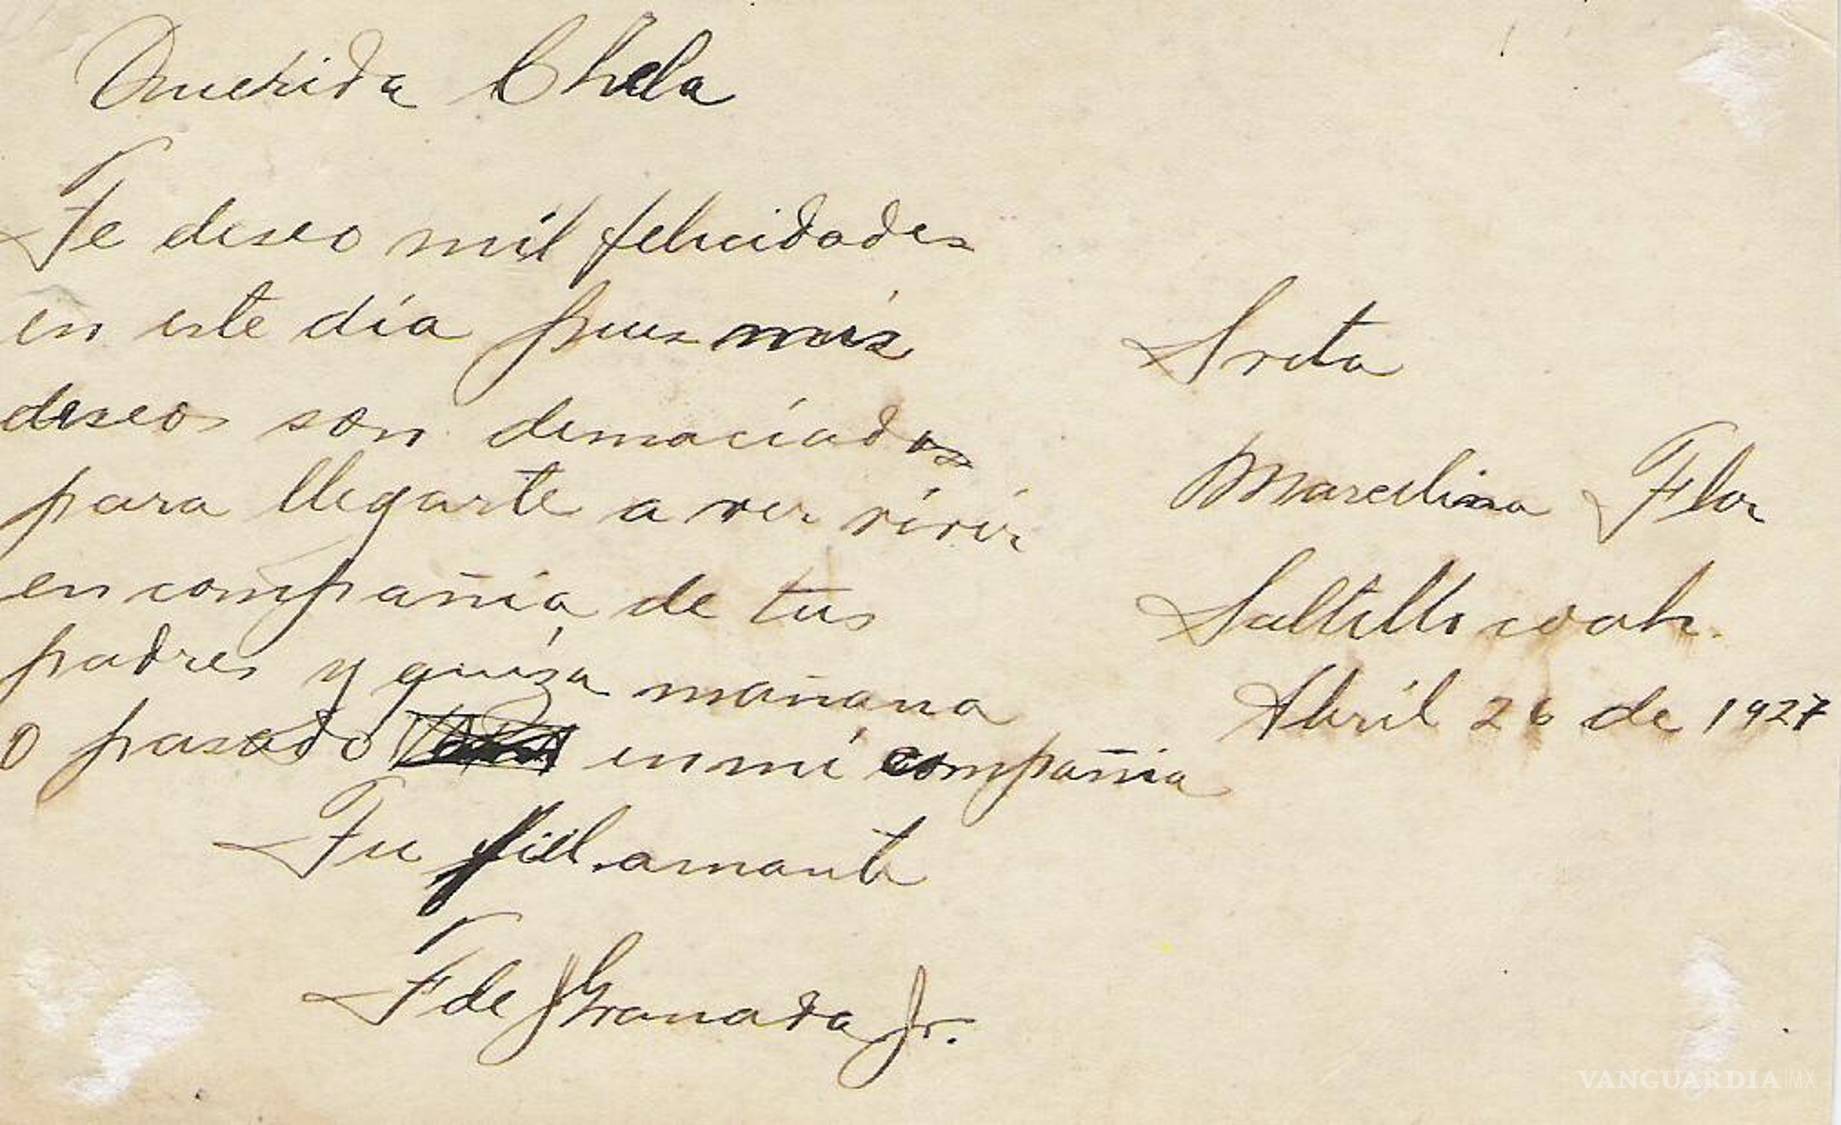 Querida Chela
Te deseo mil felicidades
en este día pues mis
deseos son demaciados
para llegarte a ver vivir
en compañia de tus
padres y quiza mañana
o pasado en mi compañia
Tu fiel amante
F de Granada Jr.
Srita
Marcelina Flor
Saltillo coah.
Abril 26 de 1927
VANGUARDIA MX